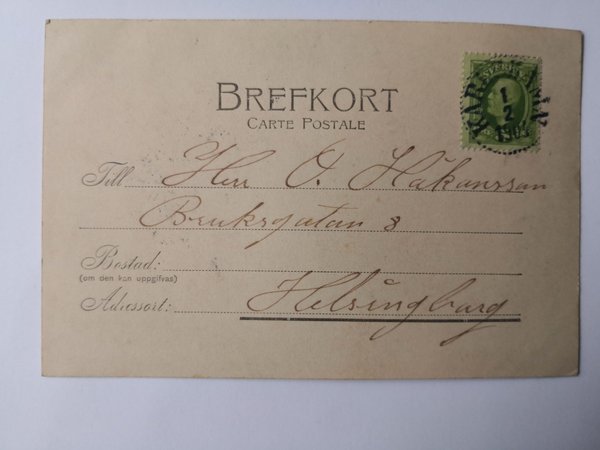 BREFKORT
CARTE POSTALE
1
2
Till Herr O. Håkansson
Bruksgatan 8
Bostad:
(om den kan uppgifvas)
Adressort: Helsingborg